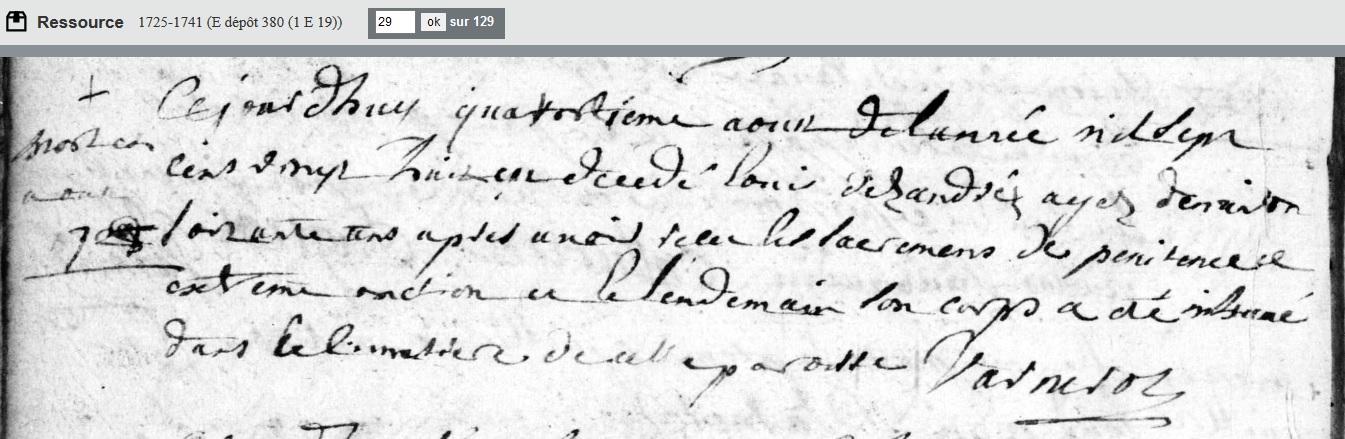 Ressource 1725-1741 (E dépôt 380 (1 E 19)) 29 ok sur 129
+
mort en
aout
Cejourdhuy quatorsieme aout de lannée mil sept
cens vingt huit est decedé loui dehandréz agez denviron
soixante ans apres avoir receu les sacremens de penitence et
extreme onction et le lendemain son corps a été inhumé
dans le cimetiere de cette paroisse